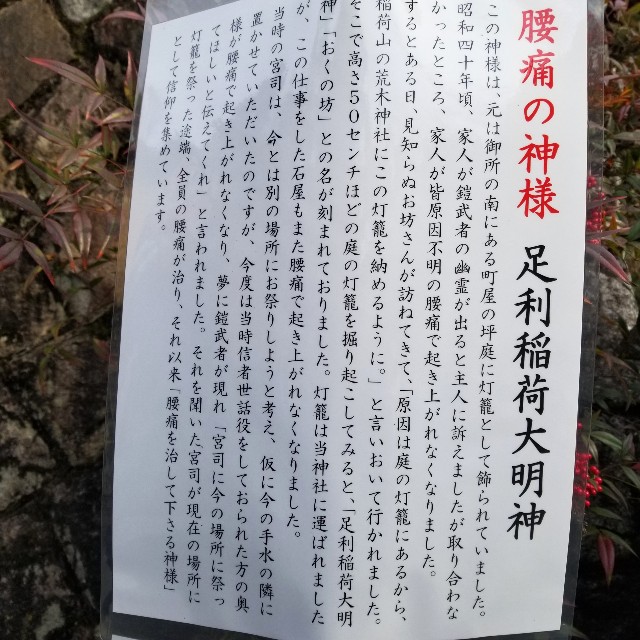 腰痛の神様　足利稲荷大明神
この神様は、元は御所の南にある町屋の坪庭に灯籠として飾られていました。
昭和四十年頃、家人が鎧武者の幽霊が出ると主人に訴えましたが取り合わな
かったところ、家人が皆原因不明の腰痛で起き上がれなくなりました。
するとある日、見知らぬお坊さんが訪ねてきて、「原因は庭の灯籠にあるから、
稲荷山の荒木神社にこの灯籠を納めるように。」と言いおいて行かれました。
そこで高さ50センチほどの庭の灯籠を掘り起こしてみると、「足利稲荷大明
神」「おくの坊」との名が刻まれておりました。灯籠は当神社に運ばれました
が、この仕事をした石屋もまた腰痛で起き上がれなくなりました。
当時の宮司は、今とは別の場所にお祭りしようと考え、仮に今の手水の隣に
置かせていただいたのですが、今度は当時信者世話役をしておられた方の奥
様が腰痛で起き上がれなくなり、夢に鎧武者が現れ「宮司に今の場所に祭っ
てほしいと伝えてくれ」と言われました。それを聞いた宮司が現在の場所に
灯籠を祭った途端、全員の腰痛が治り、それ以来「腰痛を治して下さる神様」
として信仰を集めています。